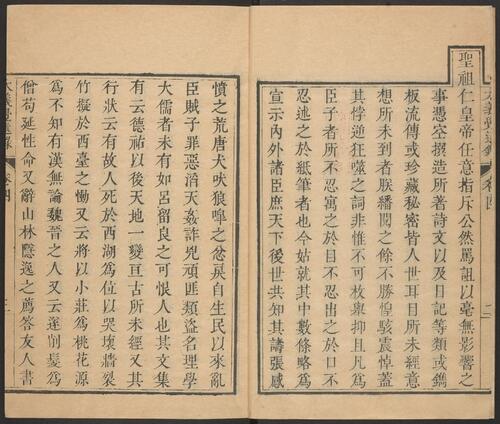 大義覺迷錄 卷四 二
聖祖仁皇帝任意指斥公然罵詛以毫無影響之
事憑空撰造所著詩文以及日記等類或鐫
板流傳或珍藏秘密皆人世耳目所未經意
想所未到者朕繙閱之餘不勝惶駭震悼蓋
其悖逆狂噬之詞非惟不可枚舉抑且凡爲
臣子者所不忍寓之於目不忍出之於口不
忍述之於紙筆者也今姑就其中數條略爲
宣示內外諸臣庶天下後世共知其譸張感
憤之荒唐犬吠狼嘷之忿戾自生民以來亂
臣賊子罪惡滔天姦詐兇頑匪類盜名理學
大儒者未有如呂留良之可恨人也其文集
有云德祐以後天地一變亘古所未經又其
行狀云有故人死於西湖爲位以哭壞牆裂
竹擬於西臺之慟又云將以小莊爲桃花源
爲不知有漢無論魏晉之人又云遂削髮爲
僧苟延性命又辭山林隱逸之薦答友人書
大義覺迷錄 卷四 三